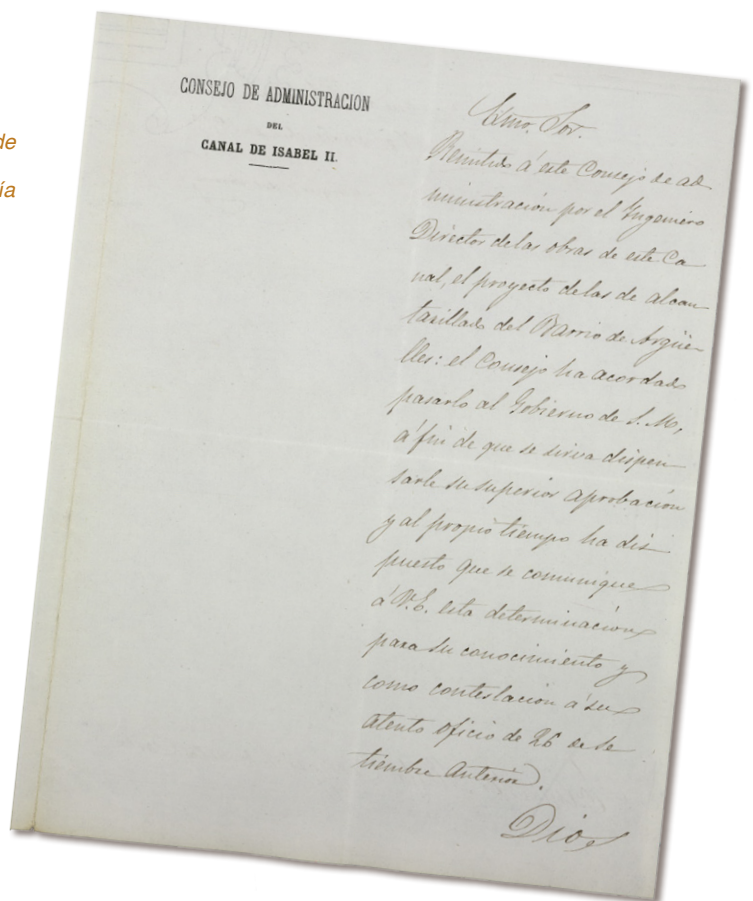 de
ía
CONSEJO DE ADMINISTRACION
DEL
CANAL DE ISABEL II.
Exmo. Sor.
Remitido á este Consejo de ad
ministracion por el Ingeniero
Director de las obras de este Ca
nal, el proyecto de las de alcan
tarillado del Barrio de Argüe-
lles: el Consejo ha acordado
pasarlo al Gobierno de S. M,
á fin de que se sirva dispen
sarle su superior aprobacion
y al propio tiempo ha dis
puesto que se comunique
á V.E. esta determinacion
para su conocimiento y
como contestacion á su
atento oficio de 26 de Se
tiembre anterior.
Dios